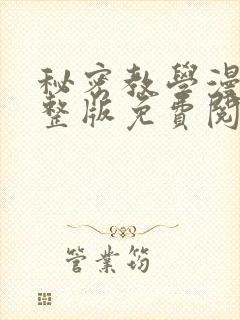 秘密教學漫
整版免費閱
管業筠